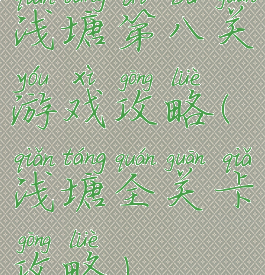 qiǎn táng dì bā guān
浅塘第八关
yóu xì gōng lüè
游戏攻略(
qiǎn táng quán guān qiǎ
浅塘全关卡
gōng lüè
攻略)